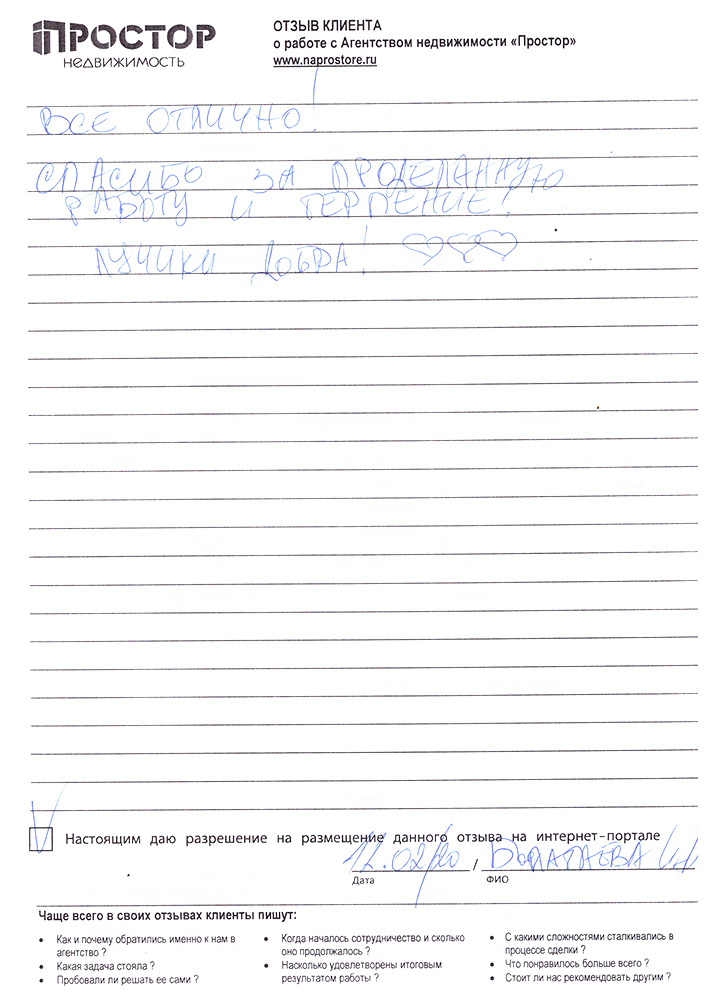 ПРОСТОР
НЕДВИЖИМОСТЬ
ОТЗЫВ КЛИЕНТА
о работе с Агентством недвижимости «Простор»
www.naprostore.ru
ВСЕ ОТЛИЧНО!
СПАСИБО ЗА ПРОДЕЛАННУЮ
РАБОТУ И ТЕРПЕНИЕ!
ЛУЧИКИ ДОБРА!
Настоящим даю разрешение на размещение данного отзыва на интернет-портале
12.02.20 /
Дата ФИО
Чаще всего в своих отзывах клиенты пишут:
• Как и почему обратились именно к нам в
агентство ?
• Какая задача стояла ?
• Пробовали ли решать ее сами ?
• Когда началось сотрудничество и сколько
оно продолжалось ?
• Насколько удовлетворены итоговым
результатом работы ?
• С какими сложностями сталкивались в
процессе сделки ?
• Что понравилось больше всего ?
• Стоит ли нас рекомендовать другим ?